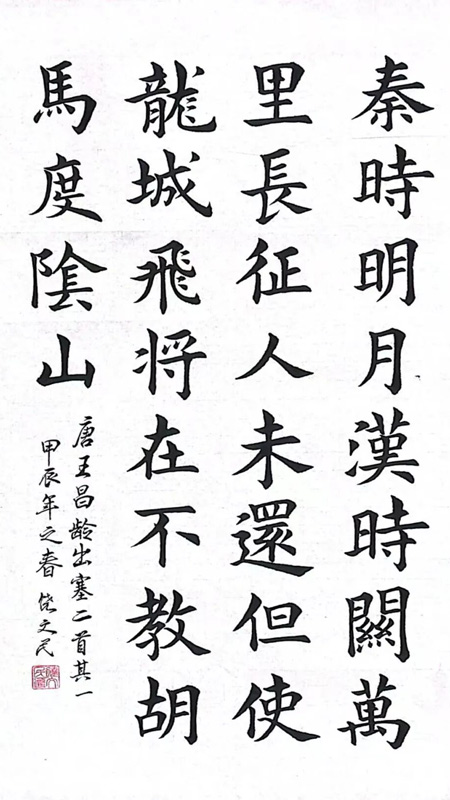 秦時明月漢時關萬
里長征人未還但使
龍城飛将在不教胡
馬度陰山
唐王昌龄出塞二首其一
甲辰年之春 佬文民